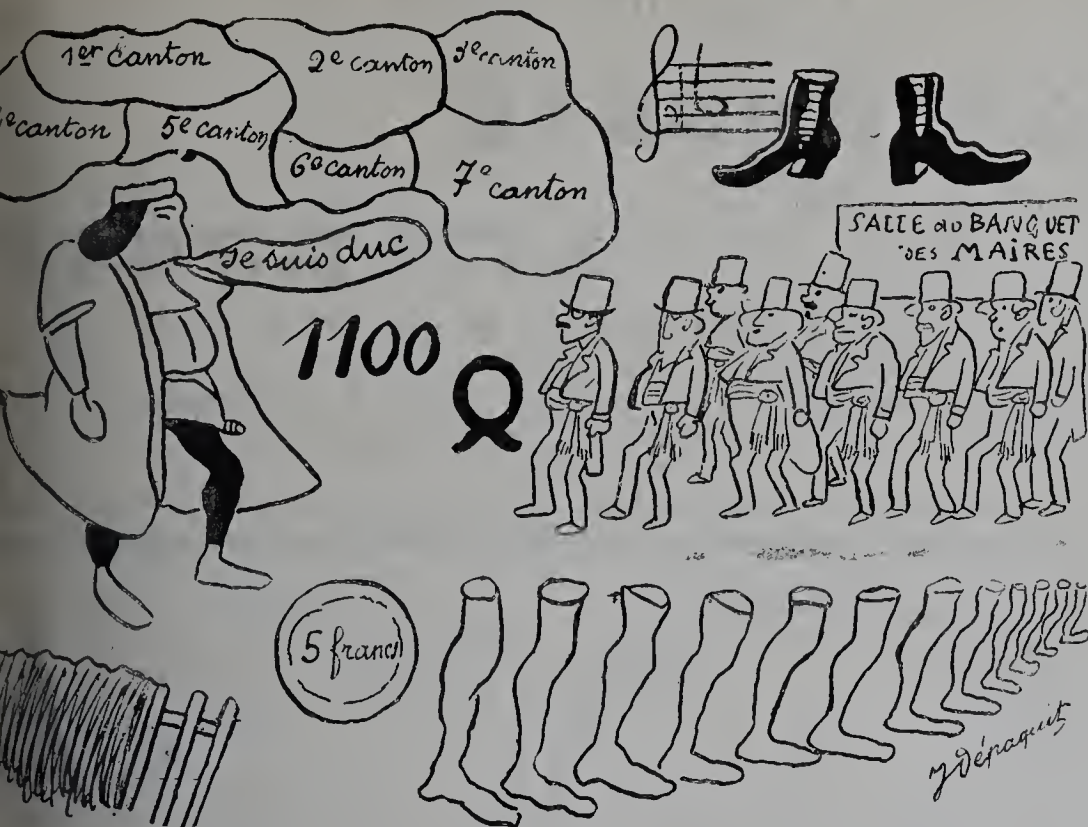 1er canton
2e canton
3e canton
canton
5e canton
6e canton
7e canton
Je suis duc
SALLE DU BANQUET
DES MAIRES
1100
5 francs
J Dépaquit